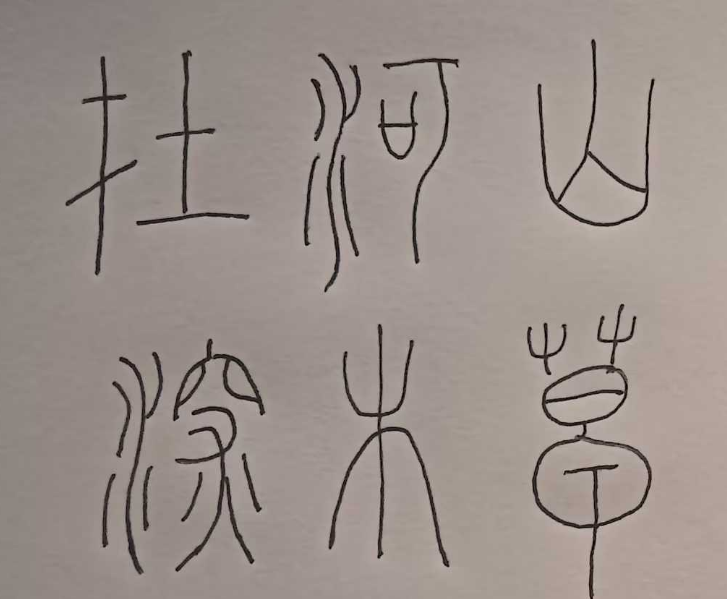 山河在
草木深